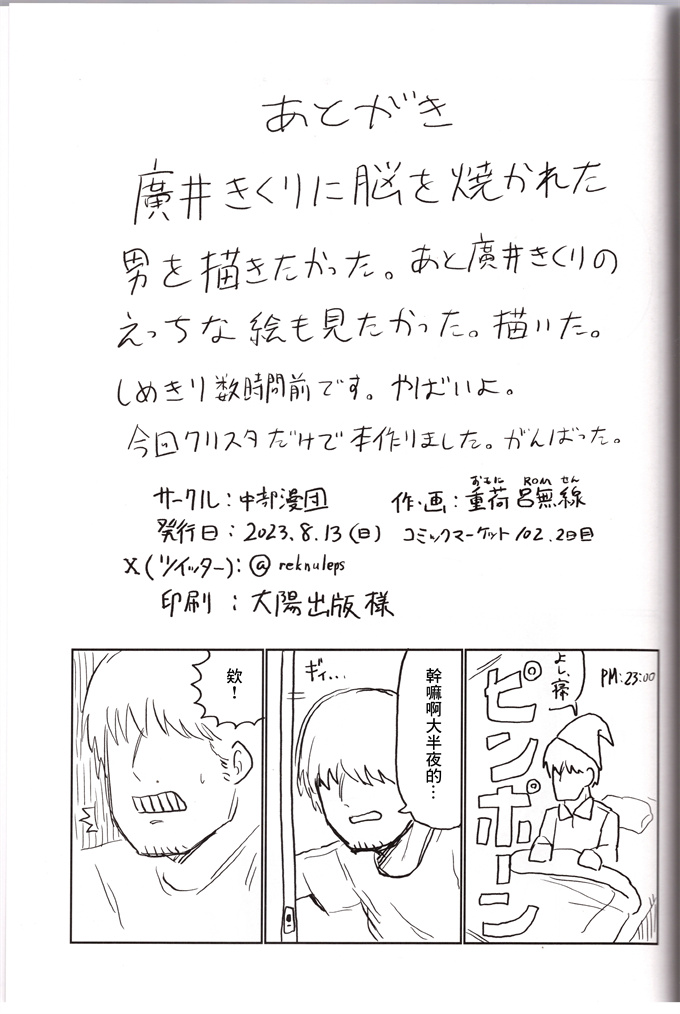 あとがき
廣井きくりに脳を焼かれた
男を描きたかった。あと廣井きくりの
えっちな絵も見たかった。描いた。
しめきり数時間前です。やばいよ。
今回クリスタだけで本作りました。がんばった。
サークル：中部漫団
作・画：重荷 呂無線
おもに ROM せん
発行日：2023.8.13（日） コミックマーケット102.2日目
X(ツイッター)：@reknuleps
印刷：大陽出版様
PM:23:00
よし、寝
ピンポーン
幹嘛啊大半夜的…
ギィ...
欸！